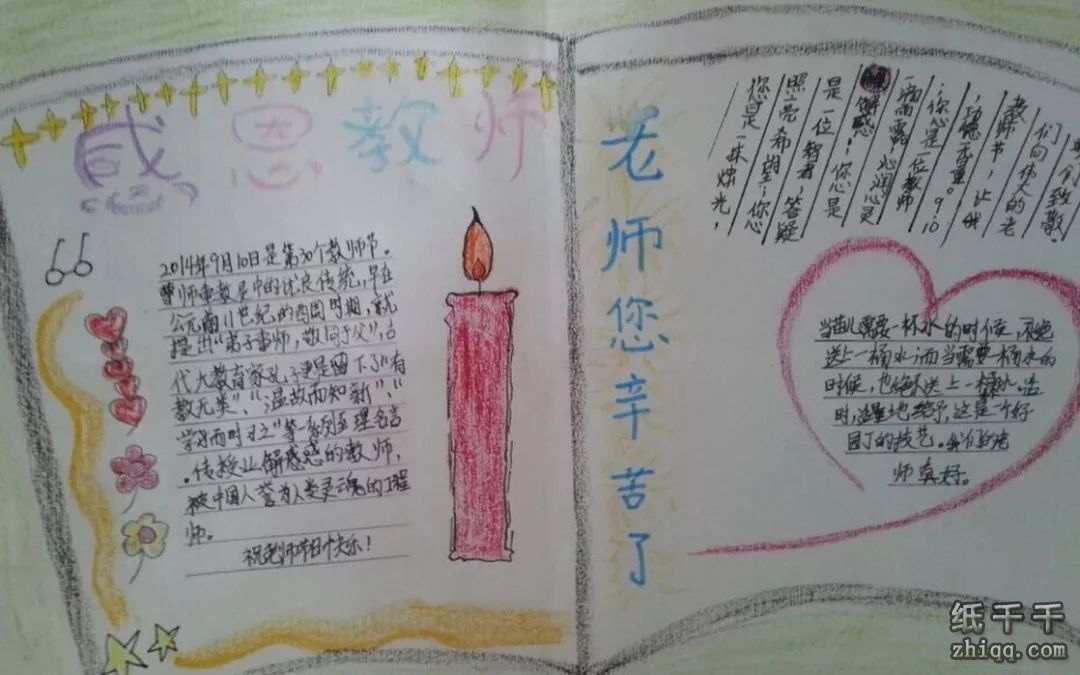 感恩教师
2014年9月10日是第30个教师节。
尊师重教是中的优良传统,早在
公元前11世纪的西周时期,就
提出“弟子事师,敬同于父”,古
代大教育家孔子更是留下了“有
教无类”、“温故而知新”、“
学而时习之”等一系列至理名言
。传授业解惑的教师,
被中国人誉为人类灵魂的工程
师。
祝老师节日快乐!
老师您辛苦了
您是一珠烛光,
照亮希望;你您
是一位智者,答疑
解惑!你您是
一滴雨露,沁润心灵
;你您是一位教师
,功德无量。9.10
教师节,让我
们向伟大的老
们致敬。
当花儿需要一杯水的时候,不
送上一桶水;而当需要一桶水的
时候,也绝不送上一杯水。适
时,适量地给予,这是一个好
园丁的技艺。我们的老
师真好。
纸千千
zhiqq.com